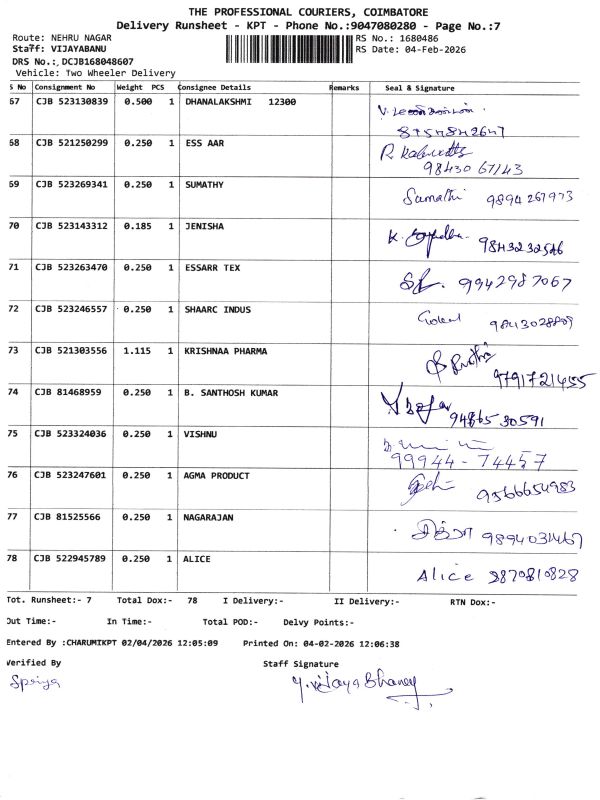 THE PROFESSIONAL COURIERS, COIMBATORE
Delivery Runsheet - KPT - Phone No.:9047080280 - Page No.:7
Route: NEHRU NAGAR
RS No.: 1680486
Staff: VIJAYABANU
RS Date: 04-Feb-2026
DRS No.:.DCJB168048607
Vehicle: Two Wheeler Delivery
S No Consignment No Weight PCS Consignee Details Remarks Seal & Signature
67 CJB 523130839 0.500 1 DHANALAKSHMI 12300
8754842647
68 CJB 521250299 0.250 1 ESS AAR
98430 67143
69 CJB 523269341 0.250 1 SUMATHY Sumathi 9894267973
70 CJB 523143312 0.185 1 JENISHA K. 9843232546
71 CJB 523263470 0.250 1 ESSARR TEX 9942987067
72 CJB 523246557 0.250 1 SHAARC INDUS Gokul 9843028889
73 CJB 521303556 1.115 1 KRISHNAA PHARMA
9791721455
74 CJB 81468959 0.250 1 B. SANTHOSH KUMAR 94865 30591
75 CJB 523324036 0.250 1 VISHNU
99944-74457
76 CJB 523247601 0.250 1 AGMA PRODUCT 9566654983
77 CJB 81525566 0.250 1 NAGARAJAN சித்ரா 9894031467
78 CJB 522945789 0.250 1 ALICE Alice 9870810828
Tot. Runsheet:- 7 Total Dox:- 78 I Delivery:- II Delivery:- RTN Dox:-
Out Time:- In Time:- Total POD:- Delvy Points:-
Entered By :CHARUMIKPT 02/04/2026 12:05:09 Printed On: 04-02-2026 12:06:38
Verified By Staff Signature
Spriya Y.vijaya Bhaney